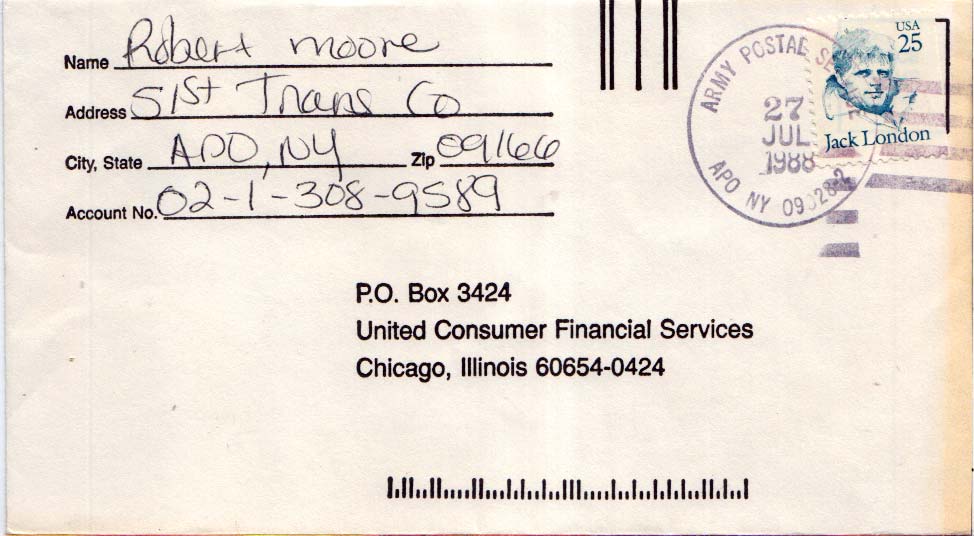 Name Robert Moore
Address 51st Trans Co
City, State APO, NY Zip 09166
Account No. 02-1-308-9589
ARMY POSTAL
27
JUL
1988
APO NY
USA
25
Jack London
P.O. Box 3424
United Consumer Financial Services
Chicago, Illinois 60654-0424